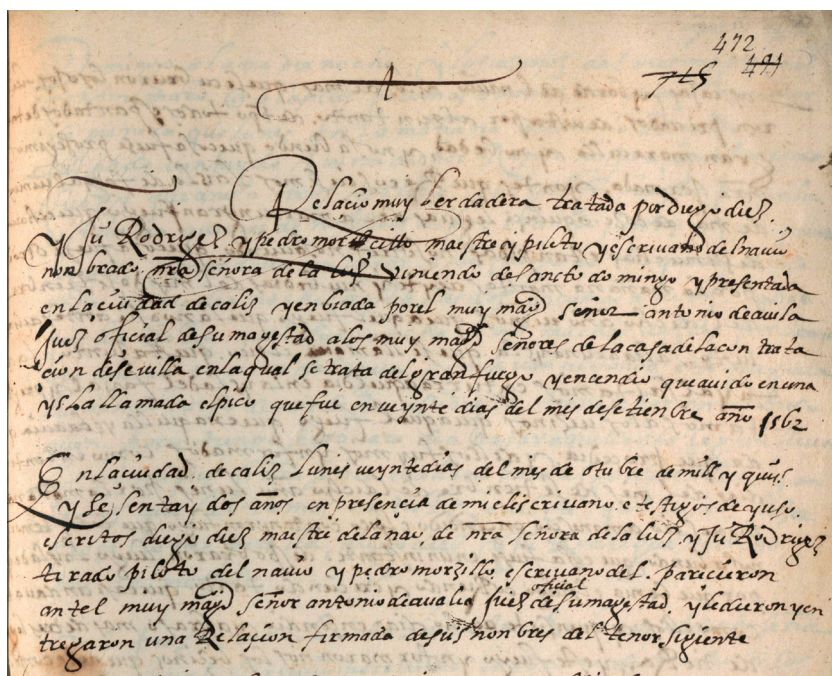 472
715 491
Relacio muy berdadera tratada por diego diez
y Ju Rodrigez y pedro morzillo maestre y piloto y escrivano del navio
nonbrado nra señora de la luz viniendo de sancto domingo y presentada
en la ciudad de caliz y enbiada por el muy magco señor antonio de avila
Juez oficial de su magestad a los muy magcos señores de la casa de la contrata
cion de sevilla en la qual se trata del gran fuego y encendio que avido en una
ysla llamada el pico que fue en veynte dias del mes de setienbre año 1562
En la ciudad de caliz lunes veynte dias del mes de otubre de mill y quis
y sesenta y dos años en presencia de mi el escrivano e testigos de yuso
escritos diego diez maestre de la nao de nra señora de la luz y Ju Rodrigez
tirado piloto del navio y pedro morzillo escrivano del parecieron
ante el muy magco señor antonio de avalia juez oficial de su magestad y le dieron y en
tregaron una Relacion firmada de sus nonbres del tenor sigiente